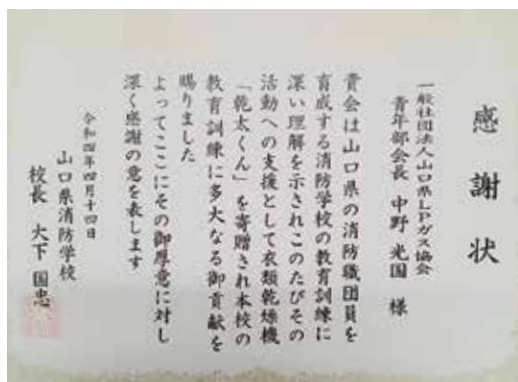 感謝状
一般社団法人山口県LPガス協会
青年部会長 中野 光国 様
貴会は山口県の消防職団員を
育成する消防学校の教育訓練に
深い理解を示されこのたびその
活動への支援として衣類乾燥機
「乾太くん」を寄贈され本校の
教育訓練に多大なる御貢献を
賜りました
よってここにその御厚意に対し
深く感謝の意を表します
令和四年四月十四日
山口県消防学校
校長 大下 国忠